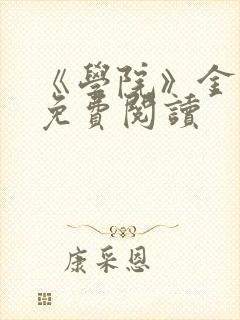 《學院》全
免費閱讀
康采恩